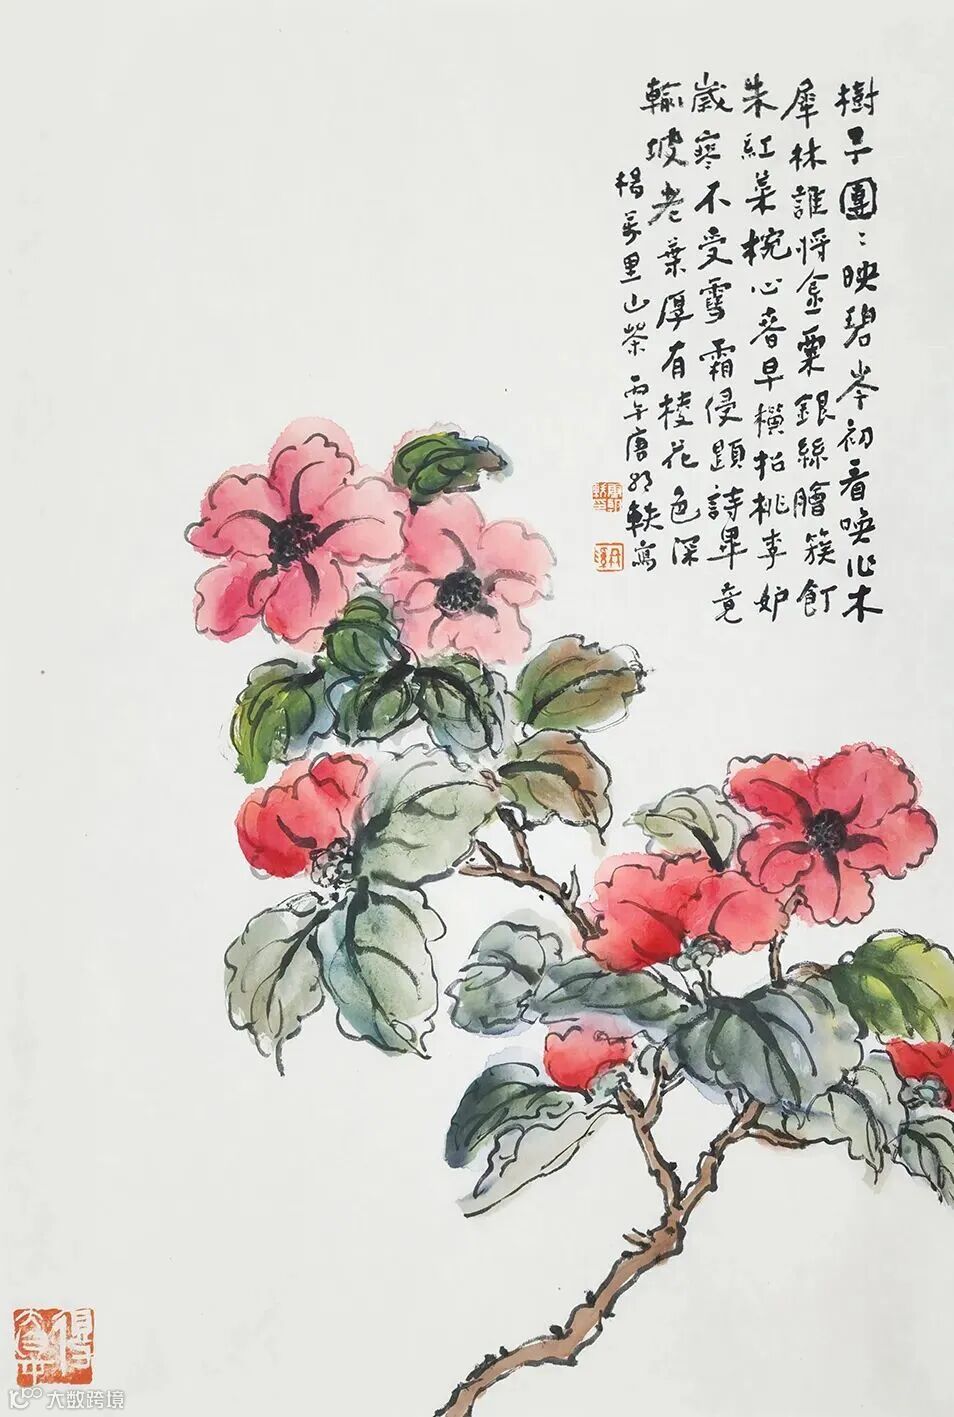 樹子團〻映碧岑初看喚作木
犀林誰將金粟銀絲膾簇飣
朱紅菜椀心春早橫招桃李妒
歲寒不受雪霜侵題詩畢竟
輸坡老葉厚有棱花色深
楊萬里山茶 丙午唐軼寫
大数跨境